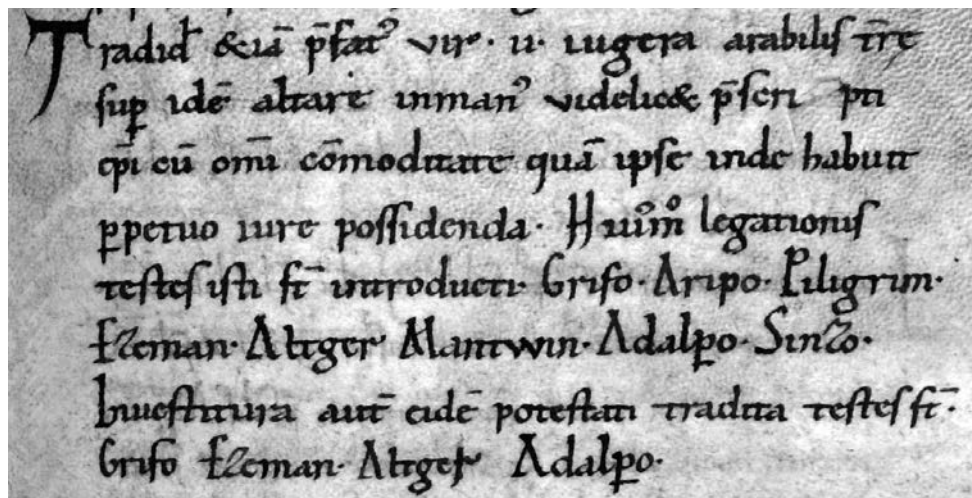 Tradid̄ &iā p̄fat᾽ vir · ii · iugera arabilis tr̄re
sup idē altare inman᾽ videlic& p̄scri pti
ep̄i cū om̄i cōmoditate quā ipse inde habuit
ppetuo iure possidenda · legationis
testes isti st̄ introducti · Grifo · Aripo · Piligrim ·
Ezeman · Altger Mantwin · Adalpo · Sinzo ·
Inuestitura aut̄ eidē potestati tradita testes st̄ ·
Grifo Ezeman · Altger Adalpo ·